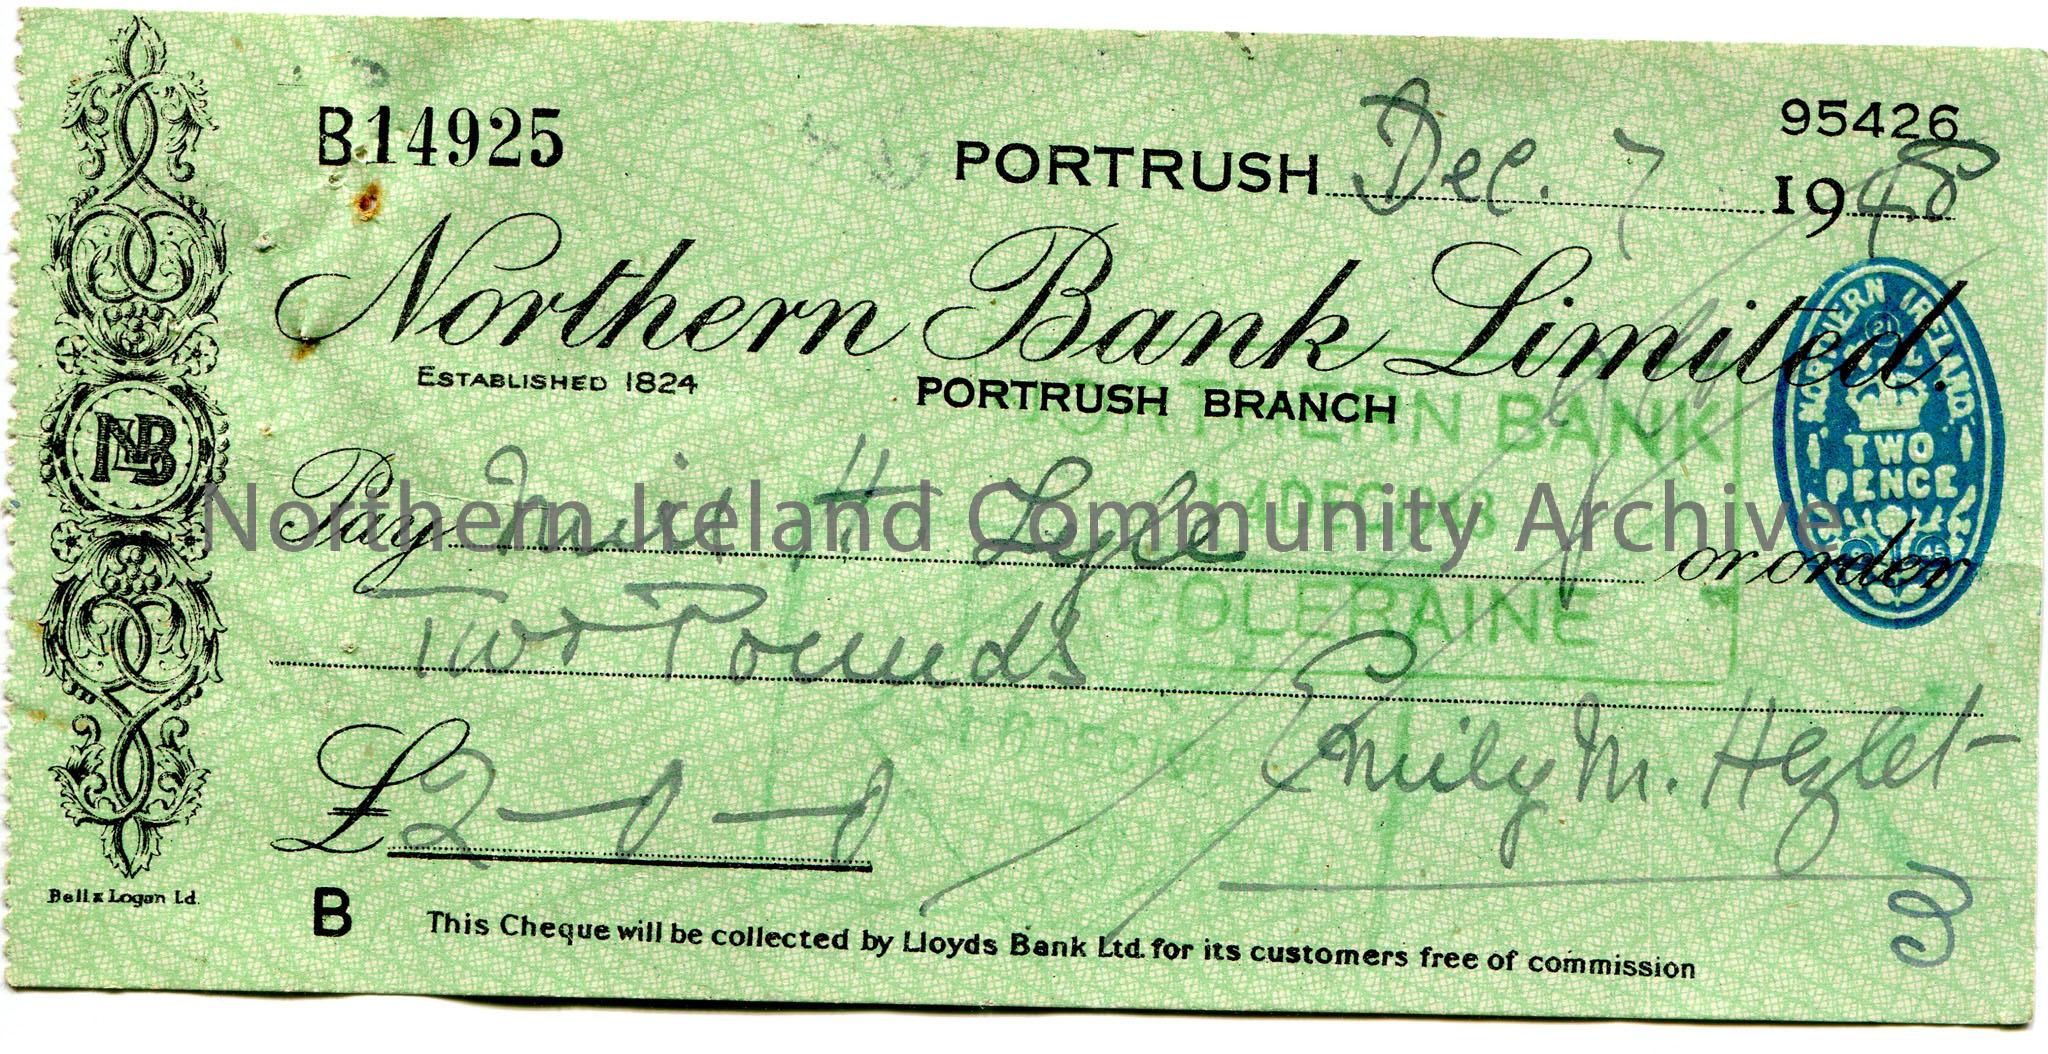 95426
B14925 PORTRUSH Dec. 7 1948
Northern Bank Limited.
ESTABLISHED 1824 PORTRUSH BRANCH
NORTHERN IRELAND
TWO
PENCE
NLB
NORTHERN BANK
14 DEC 1948
COLERAINE
Pay Miss H Lyle or order
Two Pounds
Emily M. Hezlet
£2-0-0
Bell & Logan Ld.
B This Cheque will be collected by Lloyds Bank Ltd. for its customers free of commission
Northern Ireland Community Archive